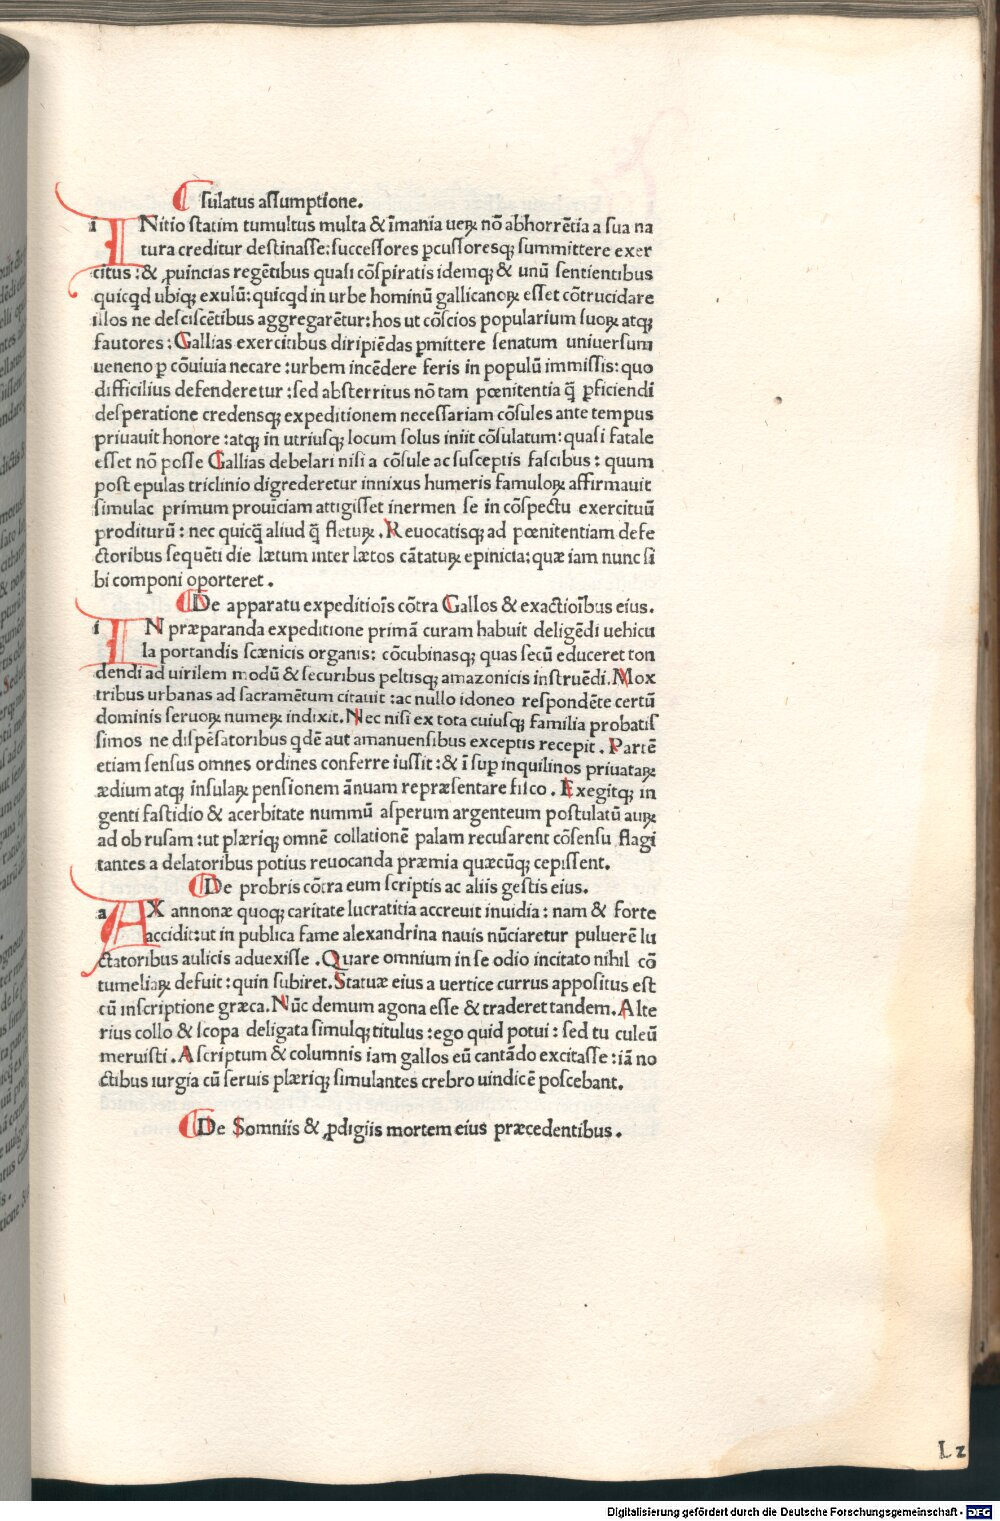 ſulatus aſſumptione.
INitio ſtatim tumultus multa & īmania ueꝝ nō abhorrētia a ſua na
tura creditur deſtinaſſe: ſucceſſores ꝑcuſſoresqꝫ ſummittere exer
citus: & ꝓuincias regētibus quaſi cōſpiratis idemqꝫ & unū ſentientibus
quicqd ubiqꝫ exulū: quicqd in urbe hominū gallicanoꝝ eſſet cōtrucidare
illos ne deſciſcētibus aggregarētur: hos ut cōſcios popularium ſuoꝝ atqꝫ
fautores: Gallias exercitibus diripiēdas ꝑmittere ſenatum uniuerſum
ueneno ꝑ cōuiuia necare: urbem incēdere feris in populū immiſſis: quo
difficilius defenderetur: ſed abſterritus nō tam pœnitentia q̄ ꝑficiendi
deſperatione credensqꝫ expeditionem neceſſariam cōſules ante tempus
priuauit honore: atqꝫ in utriuſqꝫ locum ſolus iniit cōſulatum: quaſi fatale
eſſet nō poſſe Gallias debelari niſi a cōſule ac ſuſceptis faſcibus: quum
poſt epulas triclinio digrederetur innixus humeris famuloꝝ affirmauit
ſimulac primum prouīciam attigiſſet inermen ſe in cōſpectu exercituū
proditurū: nec quicq̄ aliud q̄ fletuꝝ. Reuocatisqꝫ ad pœnitentiam defe
ctoribus ſequēti die lætum inter lætos cātatuꝝ epinicia: quæ iam nunc ſi
bi componi oporteret.
De apparatu expeditiōis cōtra Gallos & exactiōibus eius.
IN præparanda expeditione primā curam habuit deligēdi uehicu
la portandis ſcænicis organis: cōcubinasqꝫ quas ſecū educeret ton
dendi ad uirilem modū & ſecuribus peltisqꝫ amazonicis inſtruēdi. Mox
tribus urbanas ad ſacramētum citauit: ac nullo idoneo reſpondēte certū
dominis ſeruoꝝ numeꝝ indixit. Nec niſi ex tota cuiuſqꝫ familia probatiſ
ſimos ne diſpēſatoribus qdē aut amanuenſibus exceptis recepit. Partē
etiam ſenſus omnes ordines conferre iuſſit: & īſuꝑ inquilinos priuataꝝ
ædium atqꝫ inſulaꝝ penſionem ānuam repræſentare fiſco. Exegitqꝫ in
genti faſtidio & acerbitate nummū aſperum argenteum poſtulatū auꝝ
ad ob ruſam: ut plæriqꝫ omnē collationē palam recuſarent cōſenſu flagi
tantes a delatoribus potius reuocanda præmia quæcūqꝫ cepiſſent.
De probris cōtra eum ſcriptis ac aliis geſtis eius.
AX annonæ quoqꝫ caritate lucratitia accreuit inuidia: nam & forte
accidit: ut in publica fame alexandrina nauis nūciaretur puluerē lu
ctatoribus aulicis aduexiſſe. Quare omnium in ſe odio incitato nihil cō
tumeliaꝝ defuit: quin ſubiret. Statuæ eius a uertice currus appoſitus eſt
cū inſcriptione græca. Nūc demum agona eſſe & traderet tandem. Alte
rius collo & ſcopa deligata ſimulqꝫ titulus: ego quid potui: ſed tu culeū
meruiſti. Aſcriptum & columnis iam gallos eū cantādo excitaſſe: iā no
ctibus iurgia cū ſeruis plæriqꝫ ſimulantes crebro uindicē poſcebant.
De Somniis & ꝓdigiis mortem eius præcedentibus.
L z
Digitalisierung gefördert durch die Deutsche Forschungsgemeinschaft - DFG